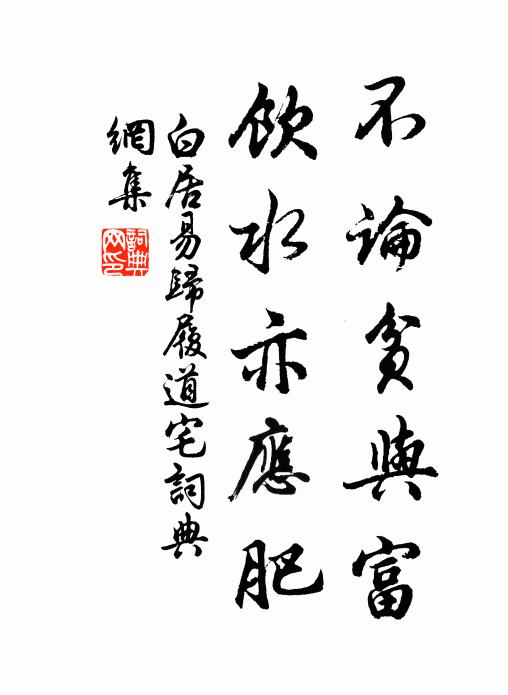 不論貧與富
飲水亦應肥
白居易歸履道宅詞典
網集
詞典
网印